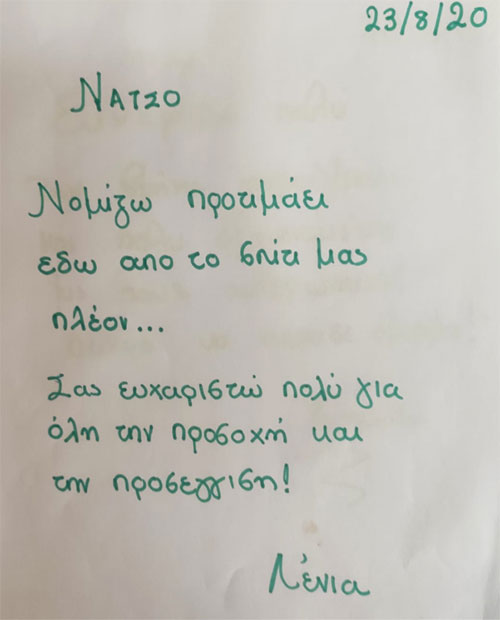 23/8/20
ΝΑΤΣΟ
Νομίζω προτιμάει
εδω απο το σπίτι μας
πλέον...
Σας ευχαριστώ πολύ για
όλη την προσοχή και
την προσεγγιση!
Λένια